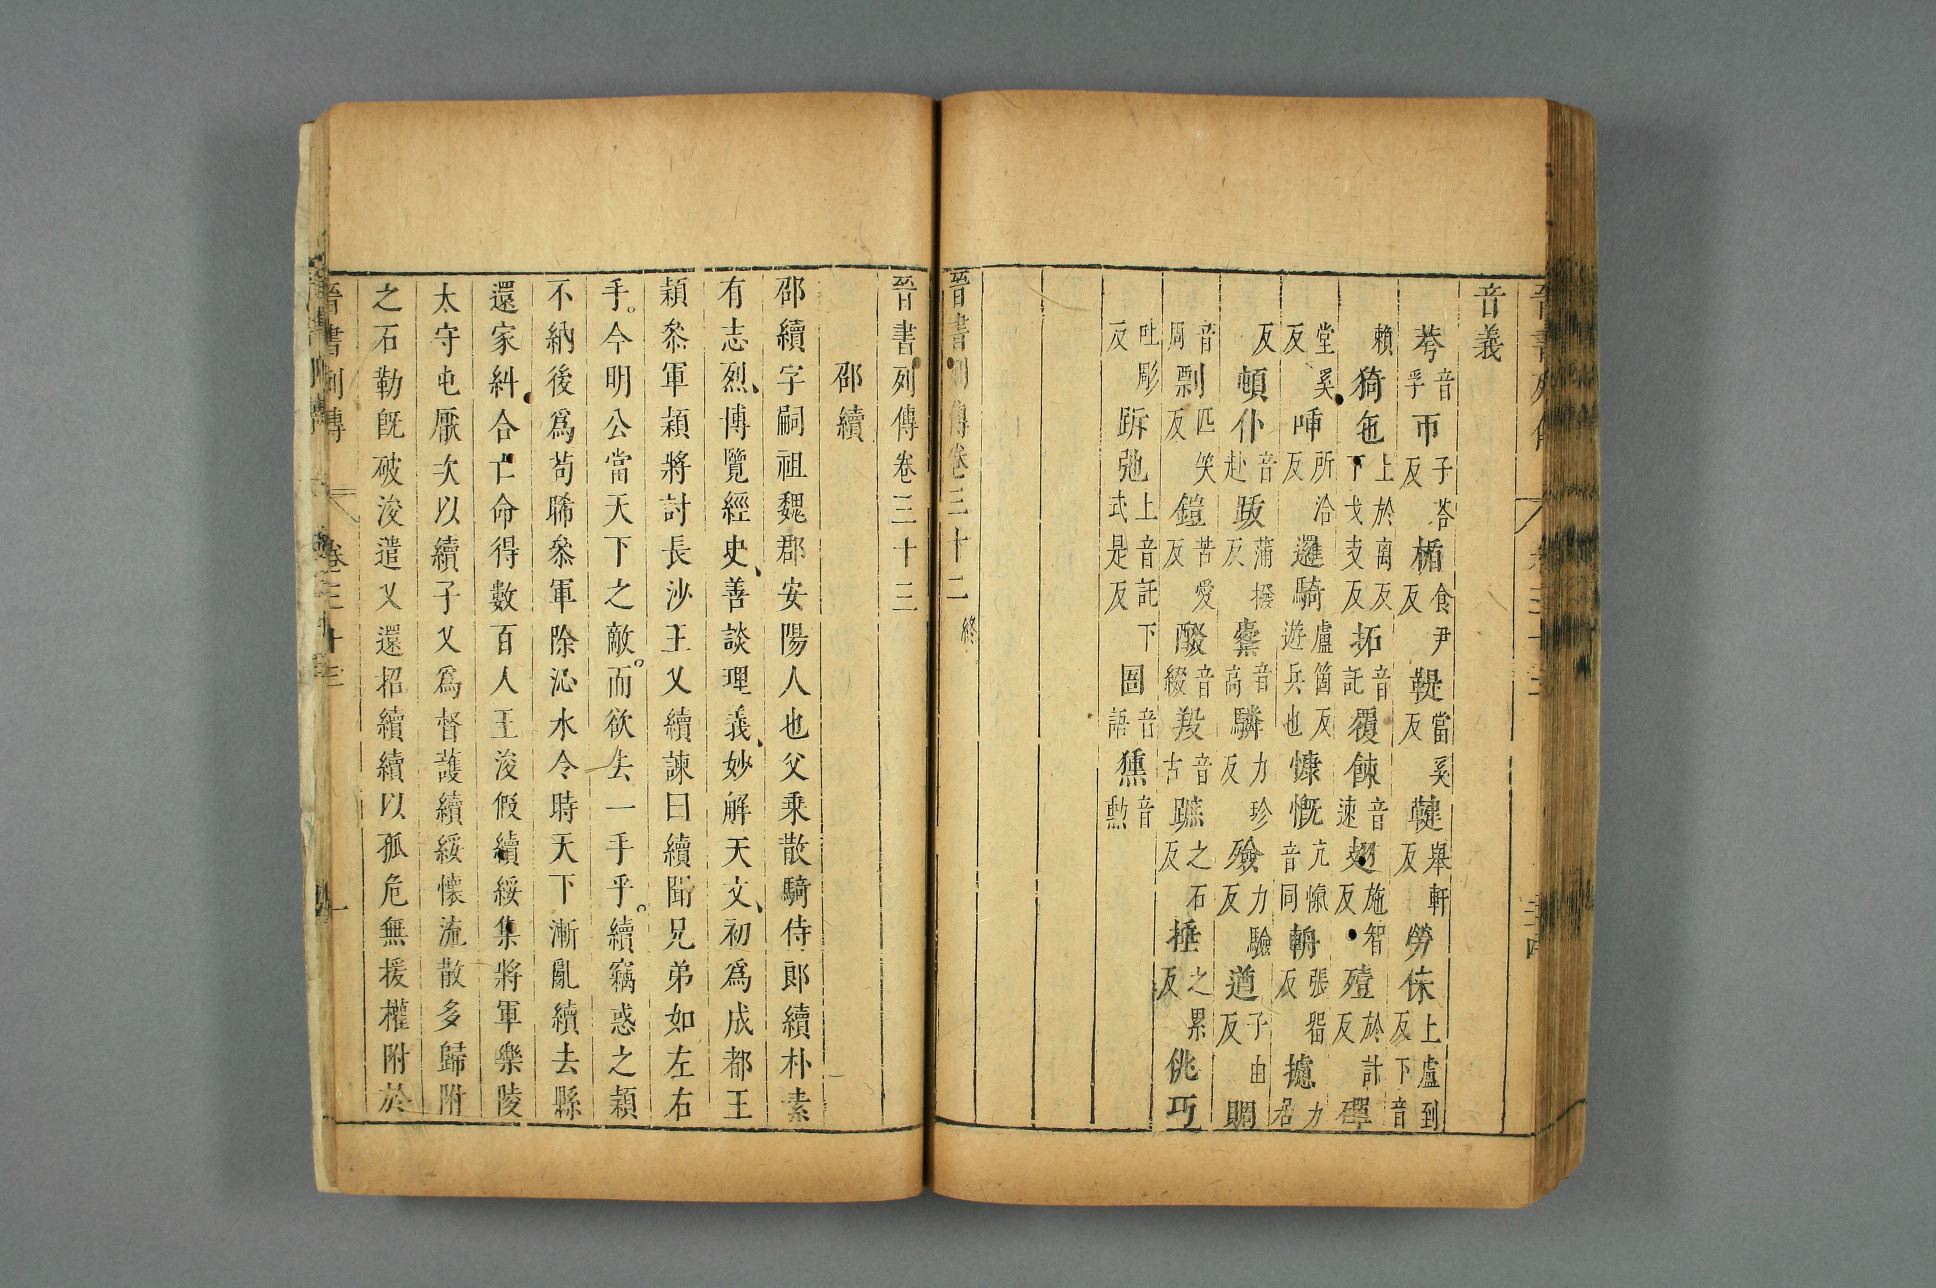 音義
荂音孚帀子荅反楯食尹反鞮當奚反鞬舉軒反勞倈上盧到反下音
賴猗㐌上於离反下戈支反拓音託覆餗音速翅施智反殪於計反磾
堂奚反啑所洽反邏騎盧箇反遊兵也慷慨亢愾音同輈張留反攄力居
反頓仆音赴䟦蒲撥反櫜音高驎力珍反殮力驗反遒子由反賙
音周剽匹笑反鎧苦愛反醊音綴羖音古蹠之石反捶之累反佻巧
吐彫反跅弛上音託下式是反圄音語獯音勳
晉書列傳卷三十二終
晉書列傳卷三十三
邵續
邵續字嗣祖魏郡安陽人也父乘散騎侍郎續朴素
有志烈博覽經史善談理義妙解天文初爲成都王
穎叅軍穎將討長沙王乂續諫曰續聞兄弟如左右
手今明公當天下之敵而欲去一手乎續竊惑之穎
不納後爲苟晞叅軍除沁水令時天下漸亂續去縣
還家糾合亡命得數百人王浚假續綏集將軍樂陵
太守屯厭次以續子乂爲督護續綏懷流散多歸附
之石勒旣破浚遣乂還招續續以孤危無援權附於
晉書列傳 卷三十三 一